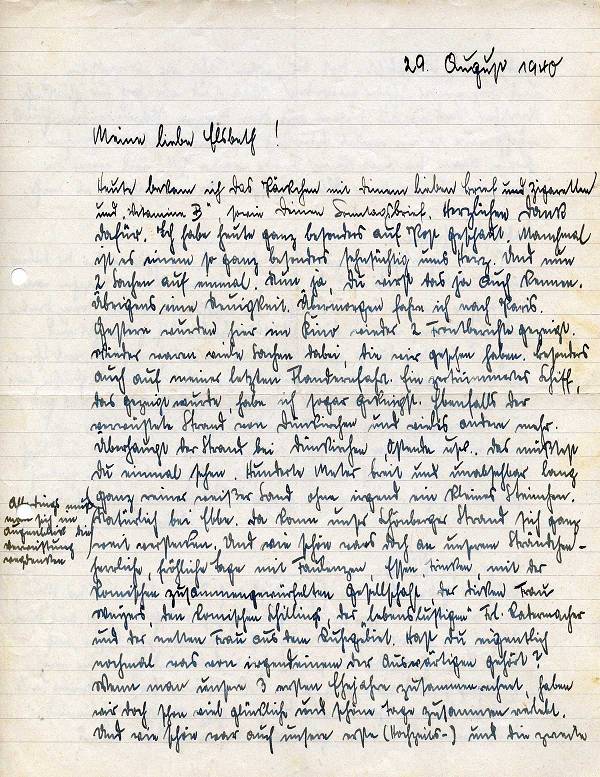 29. August 1940
Meine liebe Elsbeth!
Heute bekam ich das Päckchen mit Deinem lieben Brief und Zigaretten
und "Vitamine B", sowie Deinen Sonntagsbrief. Herzlichen Dank
dafür. Ich habe heute ganz besonders auf Post gehofft. Manchmal
ist es einem so ganz besonders sehnsüchtig ums Herz. Und nun
2 Sachen auf einmal. Nun ja, Du wirst das ja auch kennen.
Übrigens eine Neuigkeit. Übermorgen fahre ich nach Paris.
Gestern wurden hier im Kino wieder 2 Frontberichte gezeigt.
Wieder waren viele Sachen dabei, die wir gesehen haben. Besonders
auch auf meiner letzten Flandernfahrt. Ein zertrümmertes Schiff,
das gezeigt wurde, habe ich sogar geknipst. Ebenfalls der
verwüstete Strand von Dünkirchen und vieles andere mehr.
Überhaupt der Strand bei Dünkirchen, Ostende usw. das müßtest
Du einmal sehen. Hunderte Meter breit und unabsehbar lang
ganz reiner weißer Sand ohne irgend ein kleines Steinchen.
Allerdings muß
man sich im
Augenblick die
Verwüstung
wegdenken
Natürlich bei Ebbe. Da kann unser Schönberger Strand sich ganz
weit verstecken. Und wie schön wars doch an unserem Strändchen
herrliche, fröhliche Tage mit Faulenzen, Essen, Trinken mit der
komischen zusammengewürfelten Gesellschaft, der dicken Frau
Weyers, dem komischen Schillings, der "lebenslustigen" Frl. Katermacher
und der netten Frau aus dem Ruhrgebiet. Hast Du eigentlich
nochmal was von irgendeinem der Auswärtigen gehört?
Wenn man unsere 3 ersten Ehejahre zusammenrechnet, haben
wir doch schon viel glückliche und schöne Tage zusammen verlebt.
Und wie schön war auch unsere erste (Hochzeits-) und die zweite